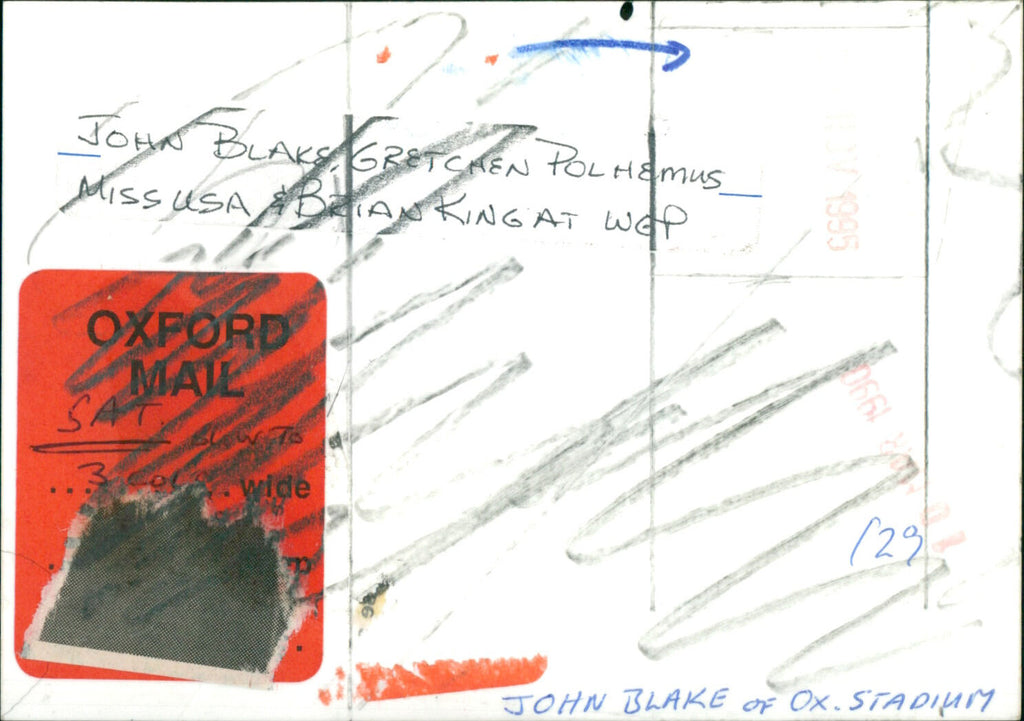 JOHN BLAKE, GRETCHEN POLHEMUS
MISS USA & BRIAN KING AT WGP
OXFORD
MAIL
SAT.
BLOW TO
...3 COLS. wide
129
JOHN BLAKE OF OX. STADIUM